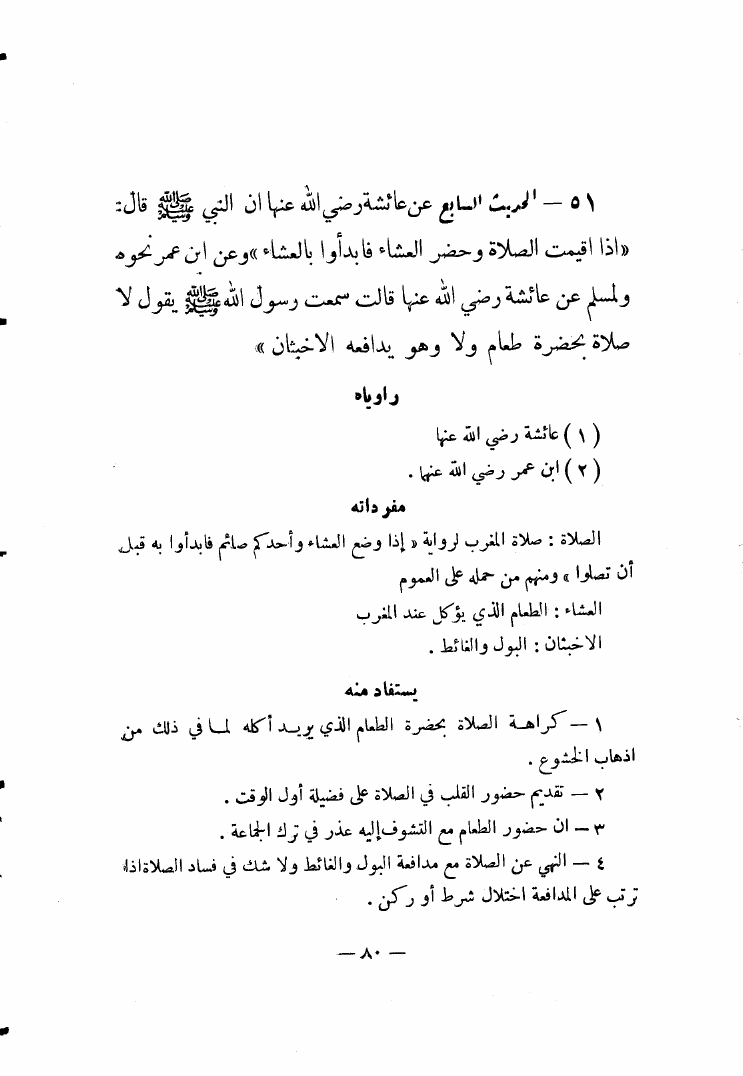 ٥١ — الحديث السابع عن عائشة رضي الله عنها ان النبي ﷺ قال:
«اذا اقيمت الصلاة وحضر العشاء فابدأوا بالعشاء» وعن ابن عمر نحوه
ولمسلم عن عائشة رضي الله عنها قالت سمعت رسول الله ﷺ يقول لا
صلاة بحضرة طعام ولا وهو يدافعه الاخبثان»
راوياه
(١) عائشة رضي الله عنها
(٢) ابن عمر رضي الله عنهما .
مفرداته
الصلاة : صلاة المغرب لرواية « إذا وضع العشاء وأحدكم صائم فابدأوا به قبل
أن تصلوا » ومنهم من حمله على العموم
العشاء : الطعام الذي يؤكل عند المغرب
الاخبثان : البول والغائط .
يستفاد منه
١ — كراهة الصلاة بحضرة الطعام الذي يريد أكله لما في ذلك من
اذهاب الخشوع .
٢ — تقديم حضور القلب في الصلاة على فضيلة أول الوقت .
٣ — ان حضور الطعام مع التشوف إليه عذر في ترك الجماعة .
٤ — النهي عن الصلاة مع مدافعة البول والغائط ولا شك في فساد الصلاة اذا
ترتب على المدافعة اختلال شرط أو ركن .
— ٨٠ —